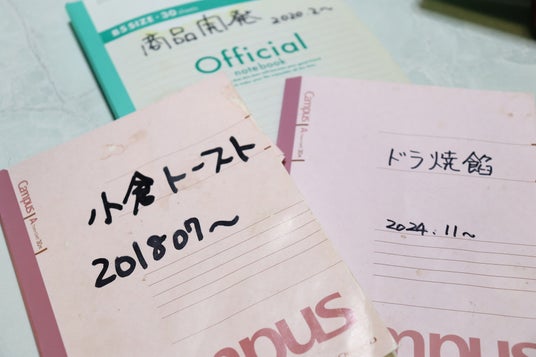 B5 SIZE・30 sheets
商品開発
2020.2〜
Official
notebook
Campus
小倉トースト
201807〜
mpus
Campus
ドラ焼餡
2024.11〜
Campus